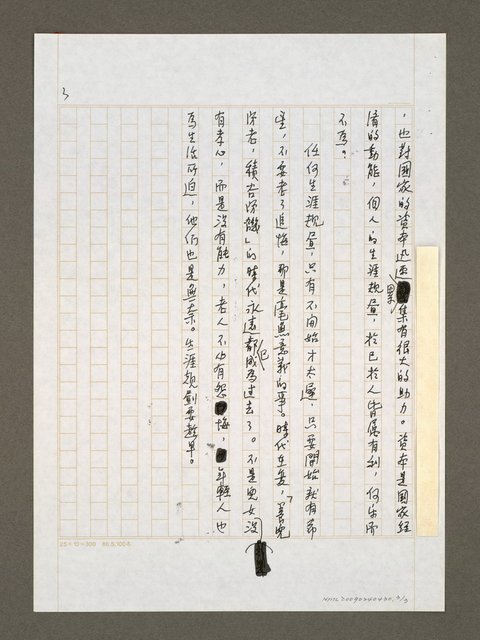 3
，也對國家的資本迅速累集有很大的助力。資本是國家經
濟的動能，個人的生涯規畫，於己於人皆屬有利，何樂而
不為？
任何生涯規畫，只有不開始才太遲，只要開始就有希
望，不要老了追悔，那是毫無意義的事。時代在變，「養兒
防老，積谷防饑」的時代永遠都已成為過去了。不是兒女沒
有孝心，而是沒有能力，老人不必有怨悔，年輕人也
為生活所迫，他們也是無奈。生涯規劃要趁早。
25×12=300 86.5.100本